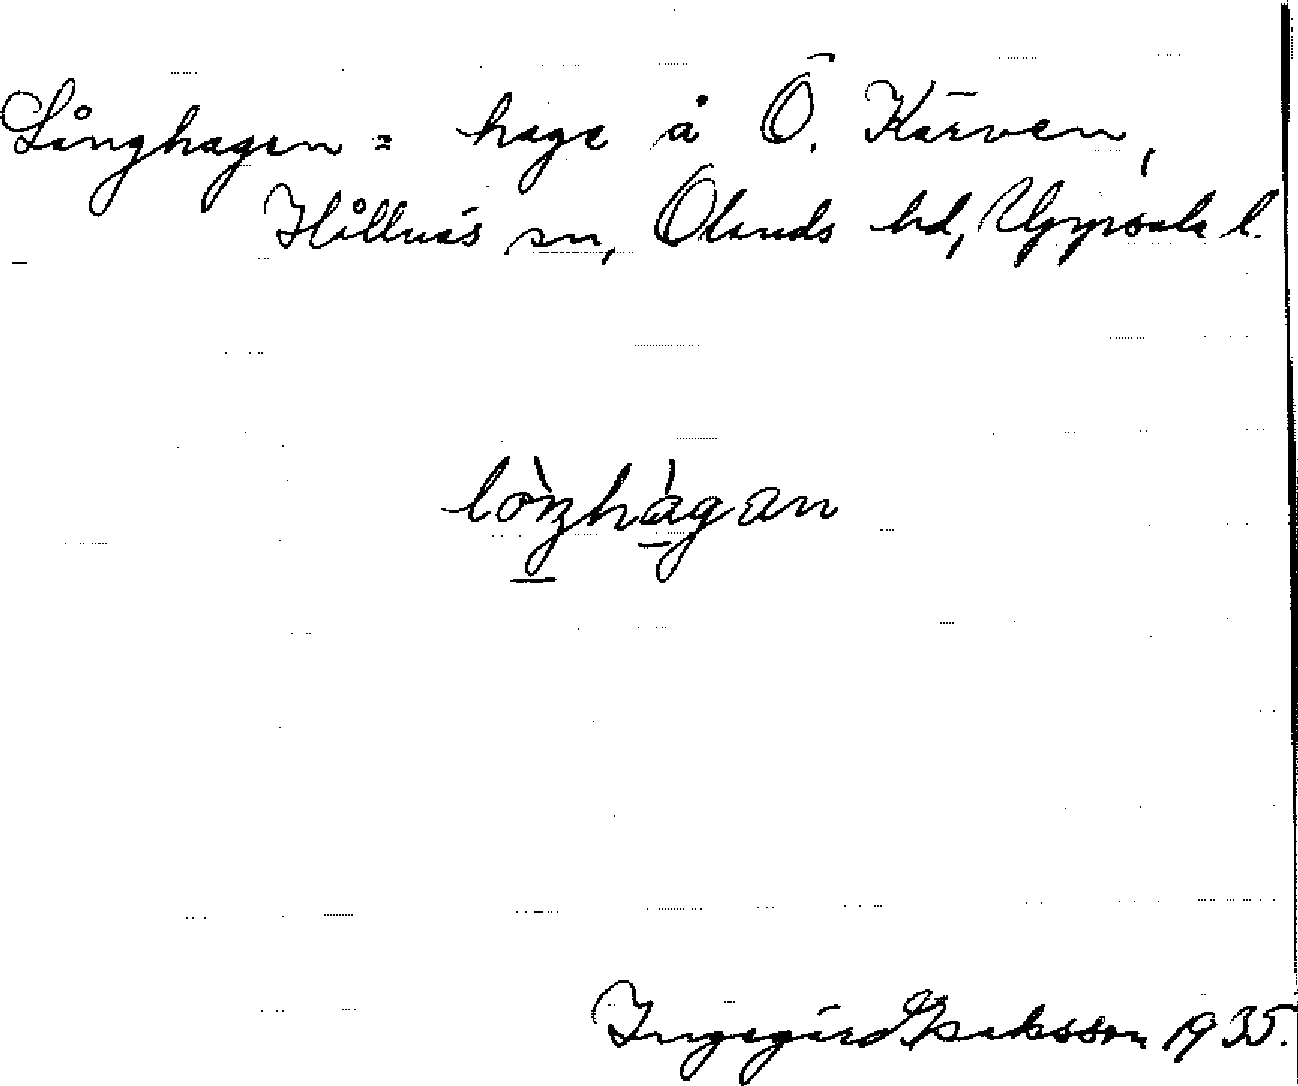 Långhagen = hage å Ö. Kärven,
Hållnäs sn, Olands hd, Uppsala l.
lòŋhágan
Ingegärd Isaksson 1935.